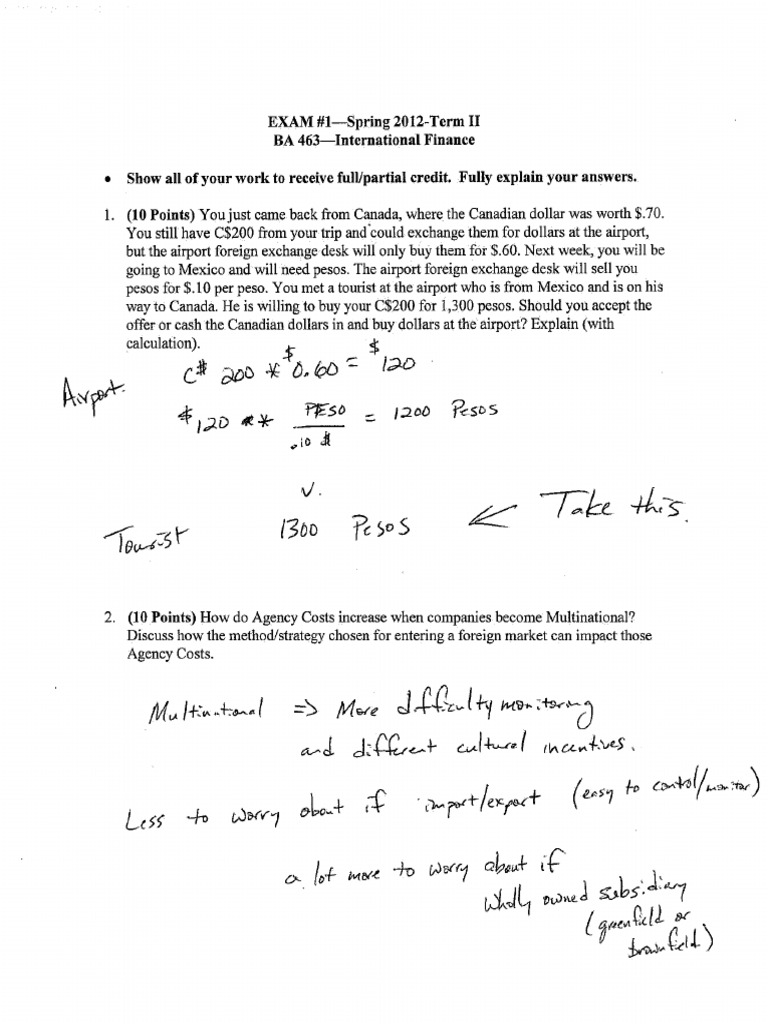 EXAM #1—Spring 2012-Term II
BA 463—International Finance
• Show all of your work to receive full/partial credit. Fully explain your answers.
1. (10 Points) You just came back from Canada, where the Canadian dollar was worth $.70.
You still have C$200 from your trip and could exchange them for dollars at the airport,
but the airport foreign exchange desk will only buy them for $.60. Next week, you will be
going to Mexico and will need pesos. The airport foreign exchange desk will sell you
pesos for $.10 per peso. You met a tourist at the airport who is from Mexico and is on his
way to Canada. He is willing to buy your C$200 for 1,300 pesos. Should you accept the
offer or cash the Canadian dollars in and buy dollars at the airport? Explain (with
calculation).
Airport.
C$ 200 * $0.60 = $120
$120 * * PESO / .10 $ = 1200 Pesos
v.
Tourist 1300 Pesos ← Take this.
2. (10 Points) How do Agency Costs increase when companies become Multinational?
Discuss how the method/strategy chosen for entering a foreign market can impact those
Agency Costs.
Multinational => More difficulty monitoring
and different cultural incentives.
Less to worry about if import/export (easy to control/monitor)
a lot more to worry about if
wholly owned subsidiary
(greenfield or
brownfield)